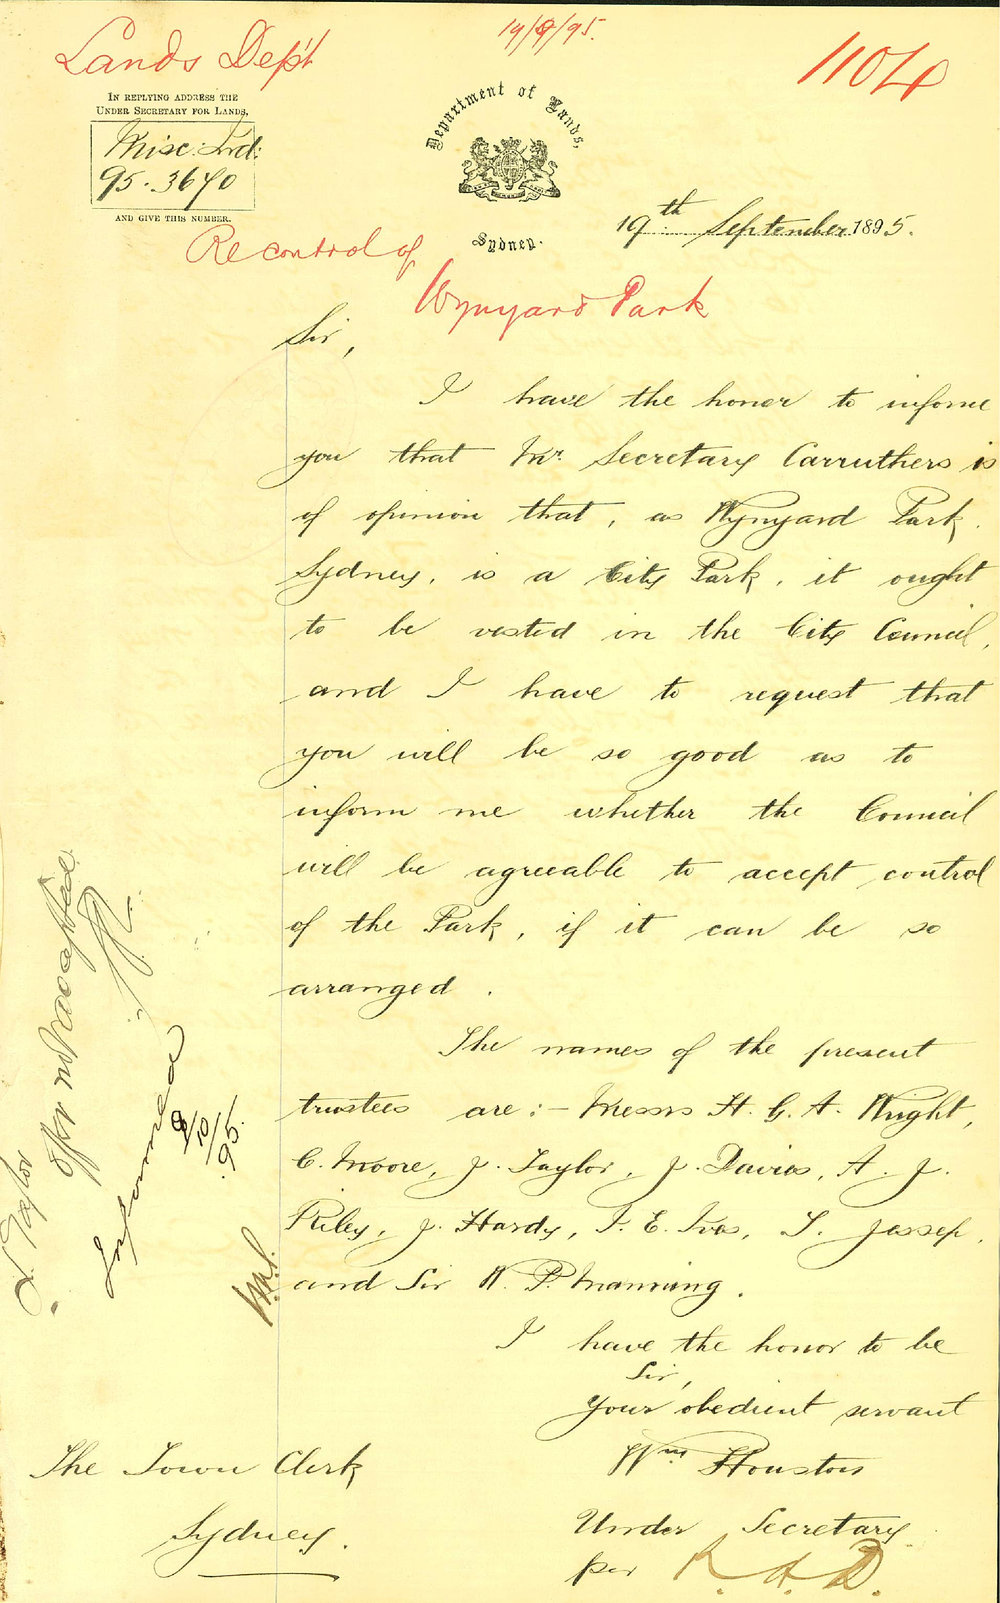 19/9/95.
Lands Dep't
1104
IN REPLYING ADDRESS THE
UNDER SECRETARY FOR LANDS,
Misc: Ird:
95. 3670
AND GIVE THIS NUMBER.
Department of Lands,
Sydney.
19th September 1895.
Re control of
Wynyard Park
Sir,
I have the honor to inform
you that Mr. Secretary Carruthers is
of opinion that, as Wynyard Park,
Sydney, is a City Park, it ought
to be vested in the City Council,
and I have to request that
you will be so good as to
inform me whether the Council
will be agreeable to accept control
of the Park, if it can be so
arranged.
The names of the present
trustees are:- Messrs H. G. A. Wright,
C. Moore, J. Taylor, J. Davies, A. J.
Riley, J. Hardy, I. E. Ives, T. Jessep,
and Sir W. P. Manning.
I have the honor to be
Sir,
Your obedient servant
Wm Houston
Under Secretary
per R. H. D.
The Town Clerk
Sydney.
Taylor
offer not accepted
Informed
9/10/95.